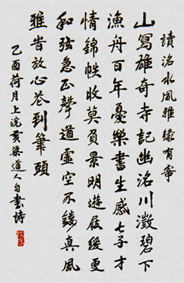 讀洛水風雅續有寄
山寫雄奇寺記幽洛川激碧下
漁舟百年憂樂書生感七子才
情錦帙收莫負景明遊屐緩更
和弦急正聲道虛空不續真風
雅昔放心卷到筆頭
乙酉荷月上浣黃築道人自書詩